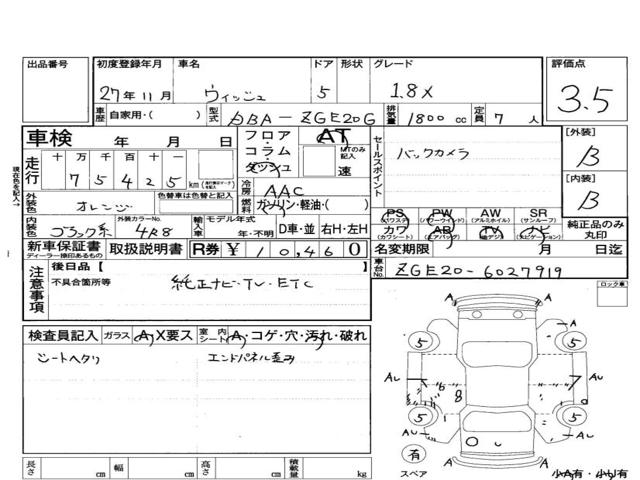 出品番号 初度登録年月 車名 ドア 形状 グレード 評価点
27年11月 ウィッシュ 5 1.8X 3.5
車歴 自家用・( ) 型式 DBA-ZGE20G 排気量 1800 cc 定員 7 人
車検 年 月 日 フロア・コラム・ダッシュ AT MTのみ記入 速 セールスポイント バックカメラ [外装] B
走行 十万千百十一 75425 km
冷房 AAC [内装] B
現在色を記入→
外装色 オレンジ 色替車は色替と記入 燃料 ガソリン・軽油・( )
内装色 ブラック系 外装カラーNo. 4R8 輸入車 モデル年式 年・不明 D車・並 右H・左H
PS (パワステ) PW (パワーウインド) AW (アルミホイル) SR (サンルーフ) 純正品のみ丸印
カワ (カワシート) AB (エアバッグ) TV ナビ (ナビゲーション)
新車保証書 ディーラー捺印あるもの 取扱説明書 R券 ¥ 10,460 名変期限 月 日迄
注意事項 後日品【 】 車台No. ZGE20-6027919
不具合箇所等 純正ナビ・TV・ETC
ロック車
検査員記入 ガラス A・X要ス 室内シート A・コゲ・穴・汚れ・破れ
シートヘタリ エンドパネル歪み
A A
5 5
AU AU
8 7
5 5
AU U AU
有
スペア A A
長さ cm 幅 cm 高さ cm 積載量 kg 小A有・小U有